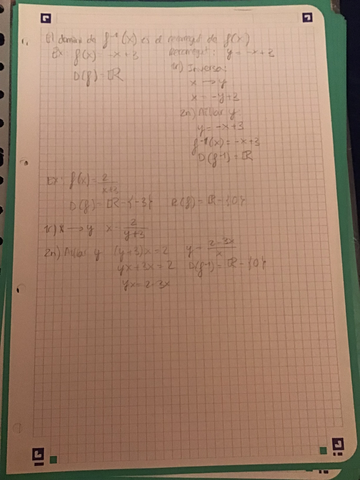 El dominio de f⁻¹(x) es el recorregut de f(x)
Ex f(x) = -x+3
D(f) = ℝ
Recorregut: y = -x+3
1r) Inversa:
x → y
x = -y+3
2n) Aïllar y
y = -x+3
f⁻¹(x) = -x+3
D(f⁻¹) = ℝ
Ex- f(x) = 2/(x+3)
D(f) = ℝ - {-3} R(f) = ℝ - {0}
1r) x → y x = 2/(y+3)
2n) Aïllar y (y+3)x = 2
yx+3x = 2
yx = 2-3x
y = (2-3x)/x
D(f⁻¹) = ℝ - {0}